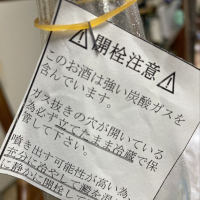 ⚠開栓注意⚠
このお酒は強い炭酸ガスを
含んでいます。
ガス抜きの穴が開いている
為必ず立てたまま冷蔵で保
管して下さい。
噴き出す可能性が高い為、
充分に冷やして瓶を
静かに開栓して